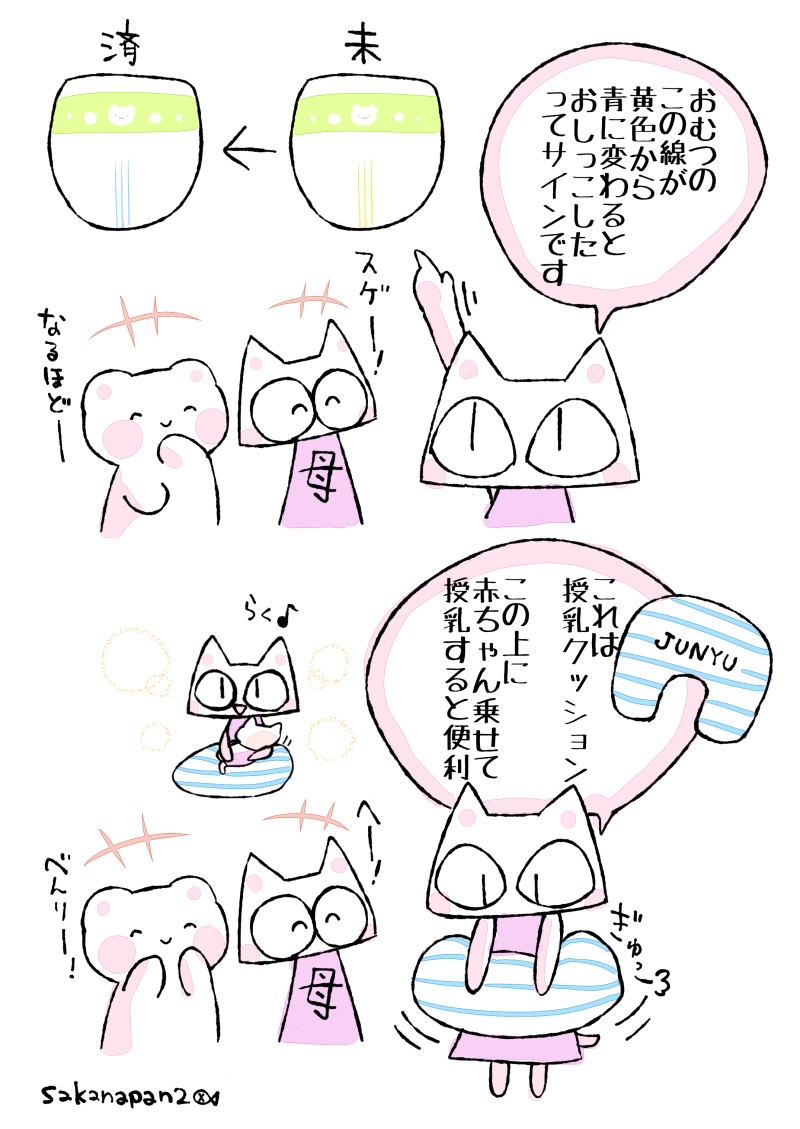 おむつの
この線が
黄色から
青に変わると
おしっこした
ってサインです
未
済
スゲー!
母
なるほどー
これは
授乳クッション
この上に
赤ちゃん乗せて
授乳すると便利
JUNYU
らく♪
ぎゅっ
へー!
母
べんりー!
sakanapan2